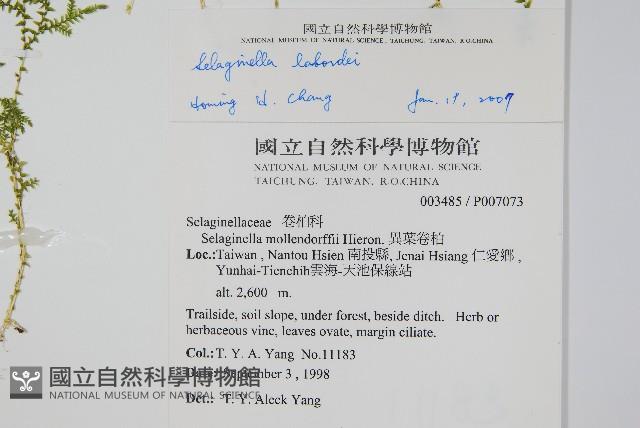 國立自然科學博物館
NATIONAL MUSEUM OF NATURAL SCIENCE, TAICHUNG, TAIWAN, R.O.CHINA
Selaginella labordei
Homing H. Chang Jan. 19, 2007
國立自然科學博物館
NATIONAL MUSEUM OF NATURAL SCIENCE
TAICHUNG, TAIWAN, R.O.CHINA
003485 / P007073
Selaginellaceae 卷柏科
Selaginella mollendorffii Hieron. 異葉卷柏
Loc.:Taiwan , Nantou Hsien 南投縣, Jenai Hsiang 仁愛鄉 ,
Yunhai-Tienchih雲海-天池保線站
alt. 2,600 m.
Trailside, soil slope, under forest, beside ditch. Herb or
herbaceous vine, leaves ovate, margin ciliate.
Col.: T. Y. A. Yang No.11183
Date: September 3 , 1998
Det.: T. Y. Aleck Yang
國立自然科學博物館
NATIONAL MUSEUM OF NATURAL SCIENCE